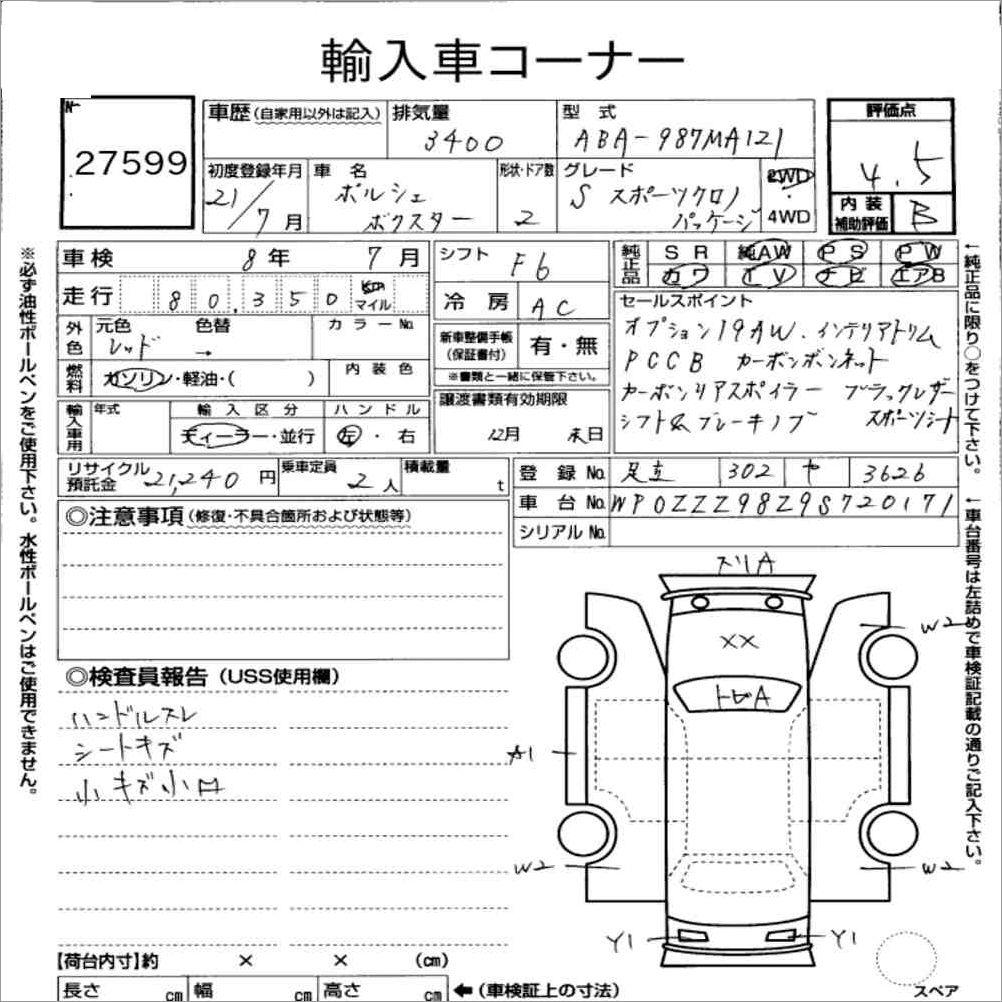 輸入車コーナー
No.
27599
車歴 (自家用以外は記入) 排気量 型式 評価点
3400 ABA-987MA121
4.5
初度登録年月 車名 形状・ドア数 グレード 2WD
21/7月 ポルシェ ボクスター 2 S スポーツクロノ パッケージ 4WD
内装補助評価 B
車検 8年 7月 シフト F6 純正品 SR 純AW PS PW
カワ TV ナビ エアB
走行 80,350 km マイル 冷房 AC
セールスポイント
外色 元色 色替 カラーNo.
レッド →
新車整備手帳(保証書付) 有・無
※書類と一緒に保管下さい。
オプション19AW. インテリアトリム
PCCB カーボンボンネット
カーボンリアスポイラー ブラックレザー
シフト&ブレーキノブ スポーツシート
燃料 ガソリン・軽油・( ) 内装色
譲渡書類有効期限
12月 末日
輸入車用 年式 輸入区分 ハンドル
ディーラー・並行 左・右
リサイクル預託金 21,240円 乗車定員 2人 積載量 t
登録No. 足立 302 や 3626
車台No. WP0ZZZ98Z9S720171
シリアルNo.
◎注意事項 (修復・不具合箇所および状態等)
◎検査員報告 (USS使用欄)
ハンドルスレ
シートキズ
小キズ小凹
スリA
W2
XX
トビA
A1
W2
W2
Y1
Y1
スペア
【荷台内寸】約 × × (cm)
長さ cm 幅 cm 高さ cm ←(車検証上の寸法)
※必ず油性ボールペンをご使用下さい。水性ボールペンはご使用できません。
←純正品に限り○をつけて下さい。
←車台番号は左詰めで車検証記載の通りご記入下さい。